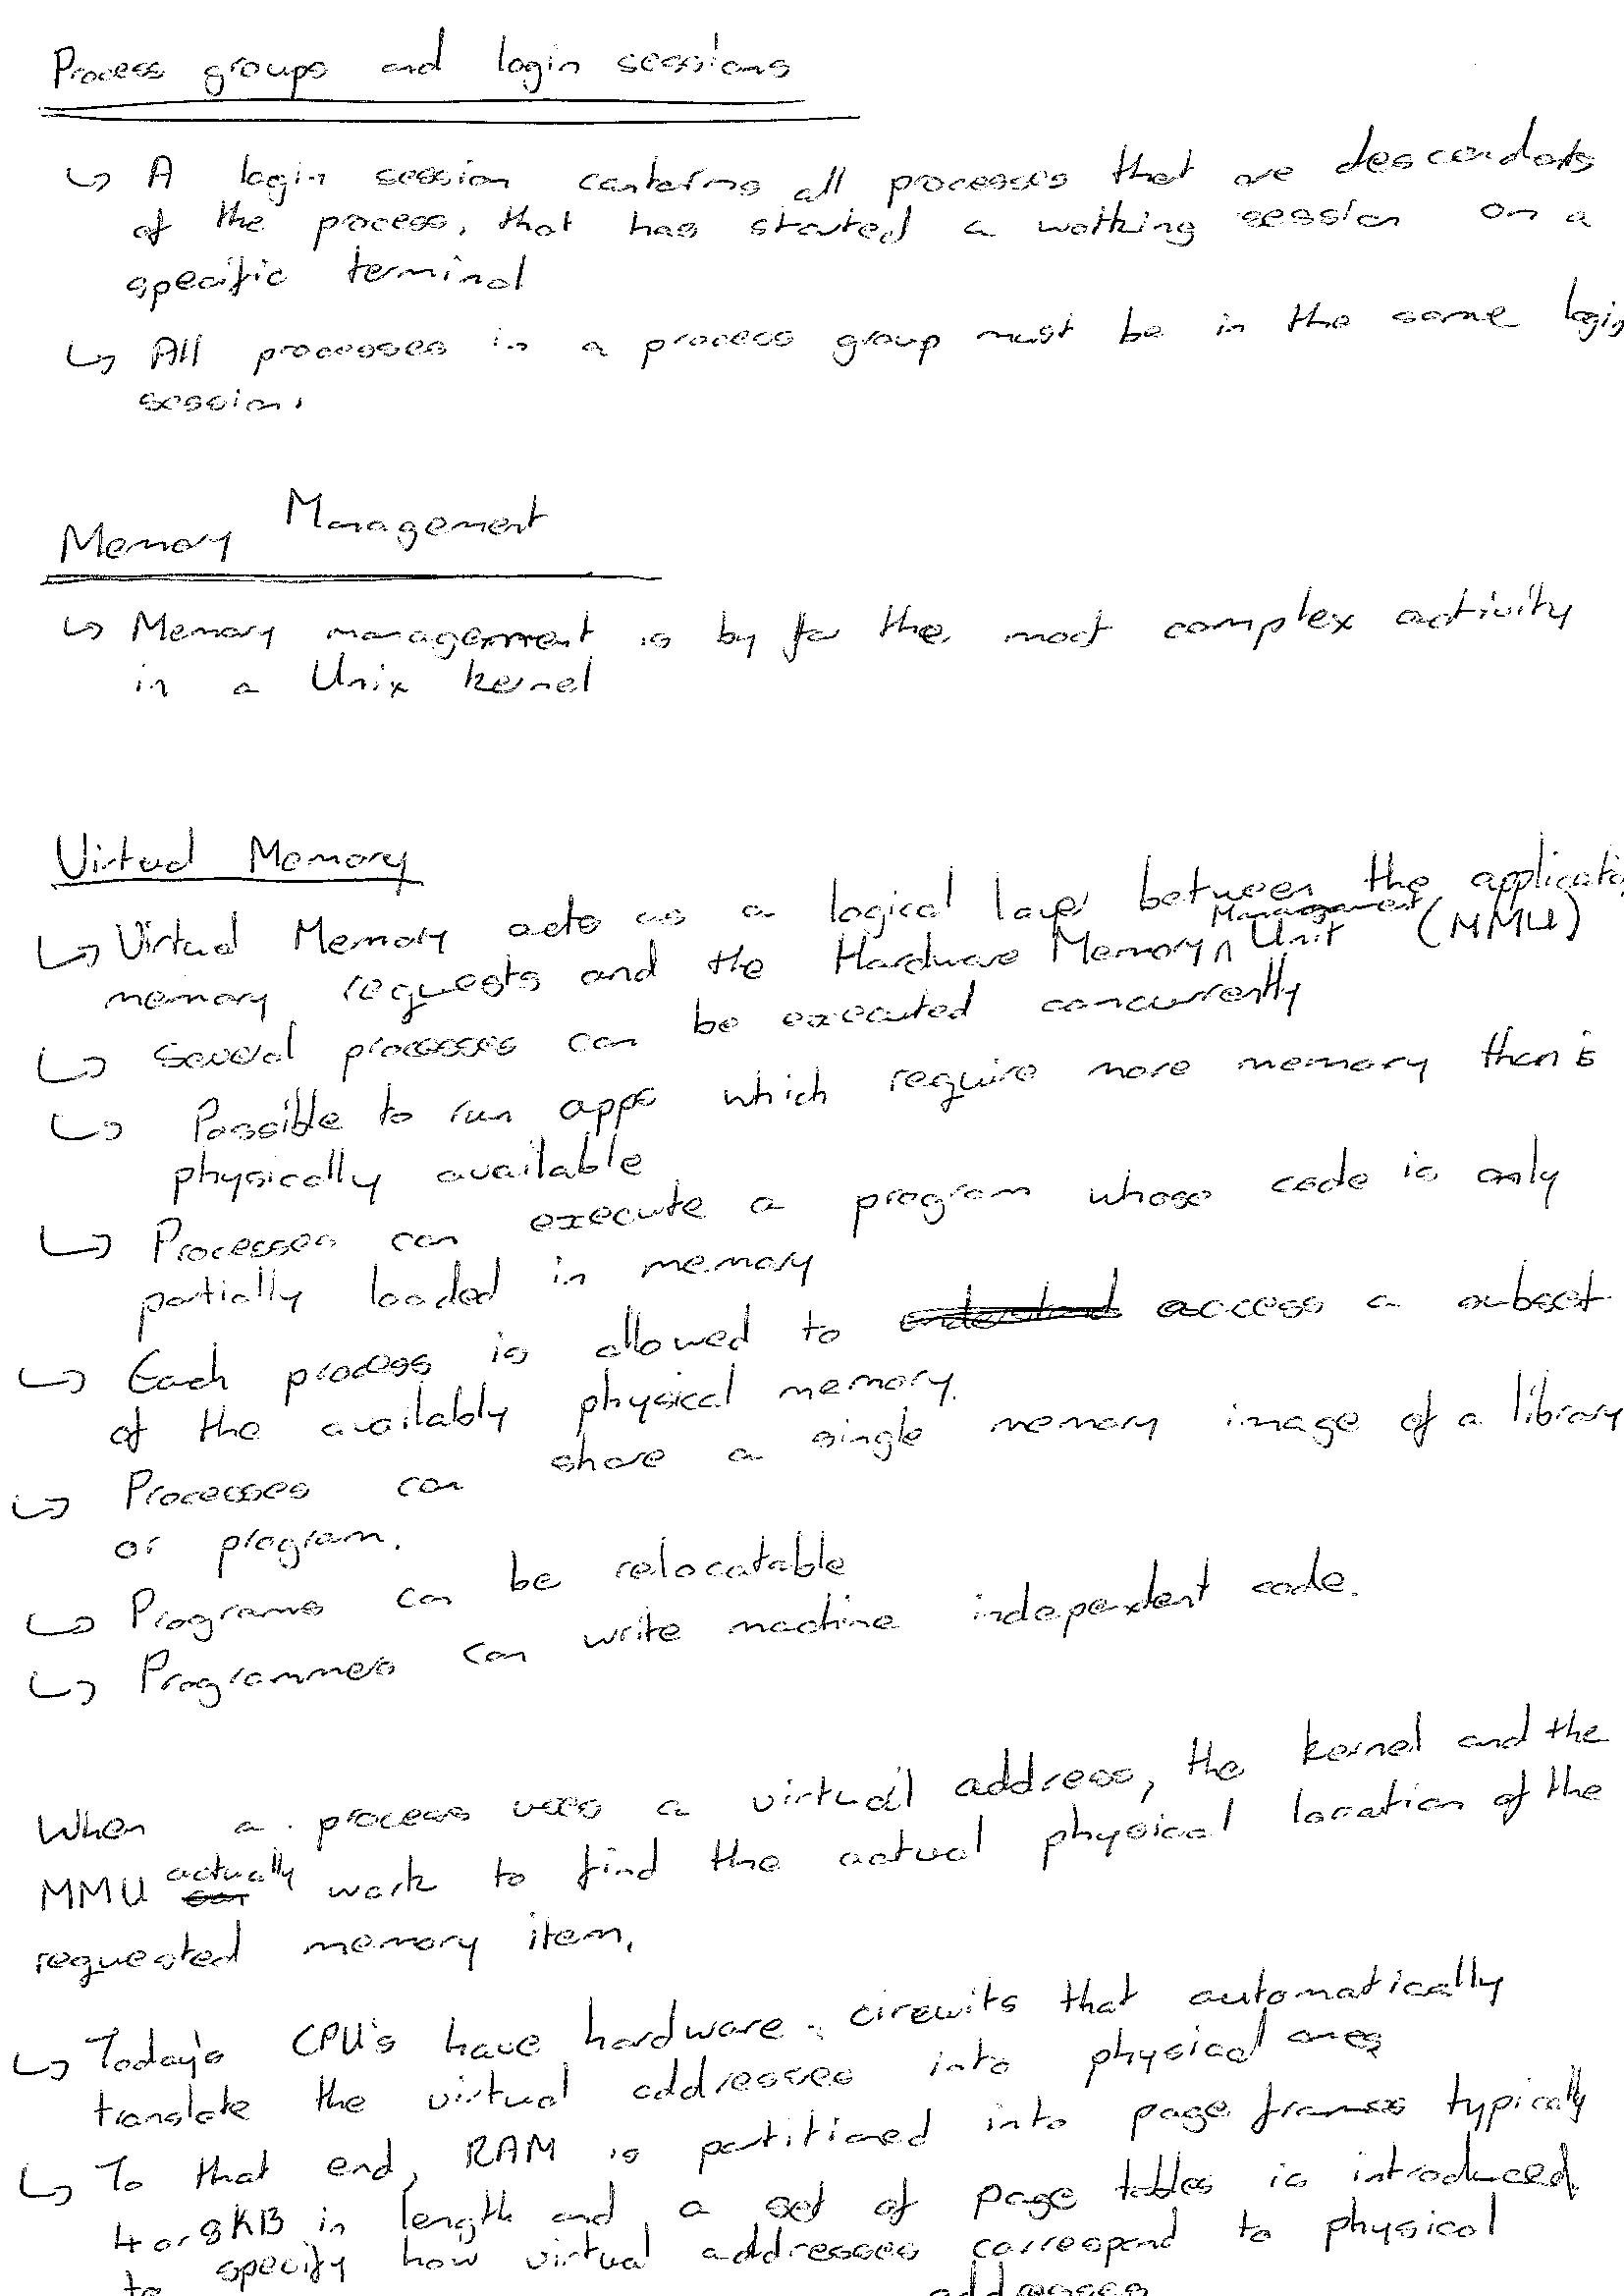 Process groups and login sessions
↳ A login session contains all processes that are descendats
of the process, that has started a working session on a
specific terminal
↳ All processes in a process group must be in the same login
session.
Memory Management
↳ Memory management is by far the most complex activity
in a Unix kernel
Virtual Memory
↳ Virtual Memory acts as a logical layer between the applicatio
memory requests and the Hardware Memory Management Unit (MMU)
↳ Several processes can be executed concurrently
↳ Possible to run apps which require more memory than is
physically available
↳ Processes can execute a program whose code is only
partially loaded in memory
↳ Each process is allowed to access a subset
of the availably physical memory.
↳ Processes can share a single memory image of a library
or program.
↳ Programs can be relocatable
↳ Programmers can write machine independent code.
When a process uses a virtual address, the kernel and the
MMU actually work to find the actual physical location of the
requested memory item.
↳ Today's CPU's have hardware circuits that automatically
translate the virtual addresses into physical ones
↳ To that end, RAM is partitioned into page frames typically
4 or 8KB in length and a set of page tables is introduced
to specify how virtual addresses correspond to physical
addresses